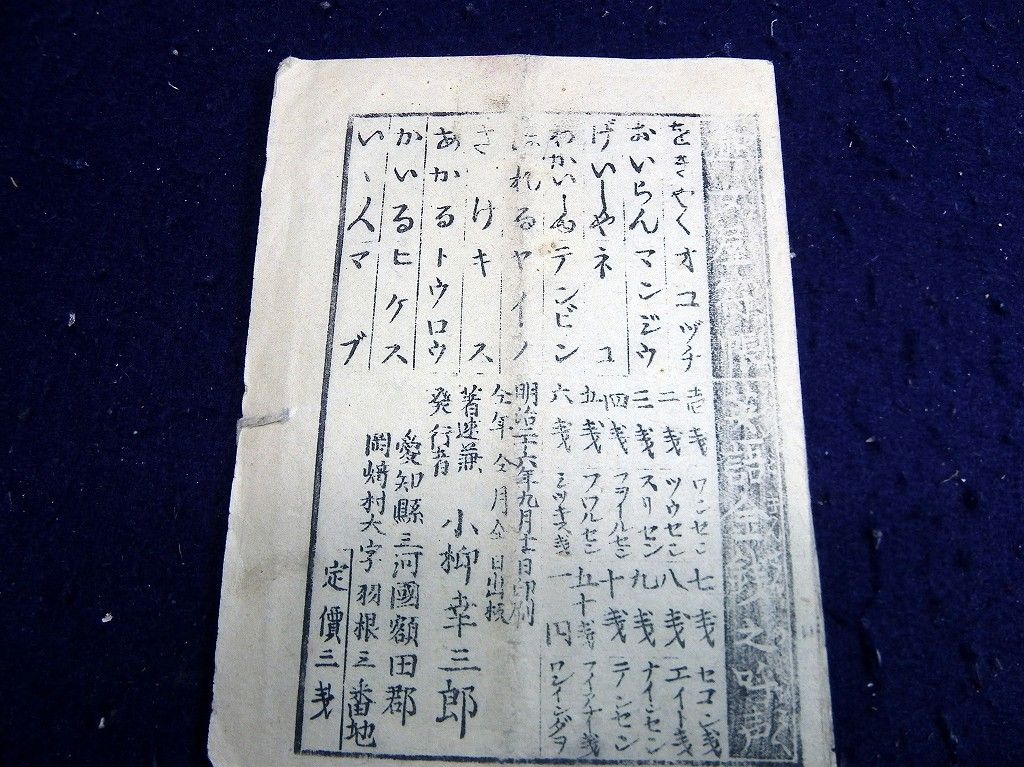 英語金銭之呼声
をきやくオコヅチ
おいらんマンジウ
げいしやネコ
わかいしゆテンビン
ほれるヤイノ
さけキス
あかるトウロウ
かいるヒケス
いゝ人マブ
壱戋 ワンセン 七戋 セコン戋
二戋 ツウセン 八戋 エイト戋
三戋 スリセン 九戋 ナインセン
四戋 フヲイルセン 十戋 テンセン
五戋 フワルセン 五十戋
六戋 シツキス戋 一円
明治二十六年九月十二日印刷
仝年仝月仝日出板
著述兼
発行者 小柳幸三郎
愛知縣三河國額田郡
岡崎村大字羽根三番地
定價三戋